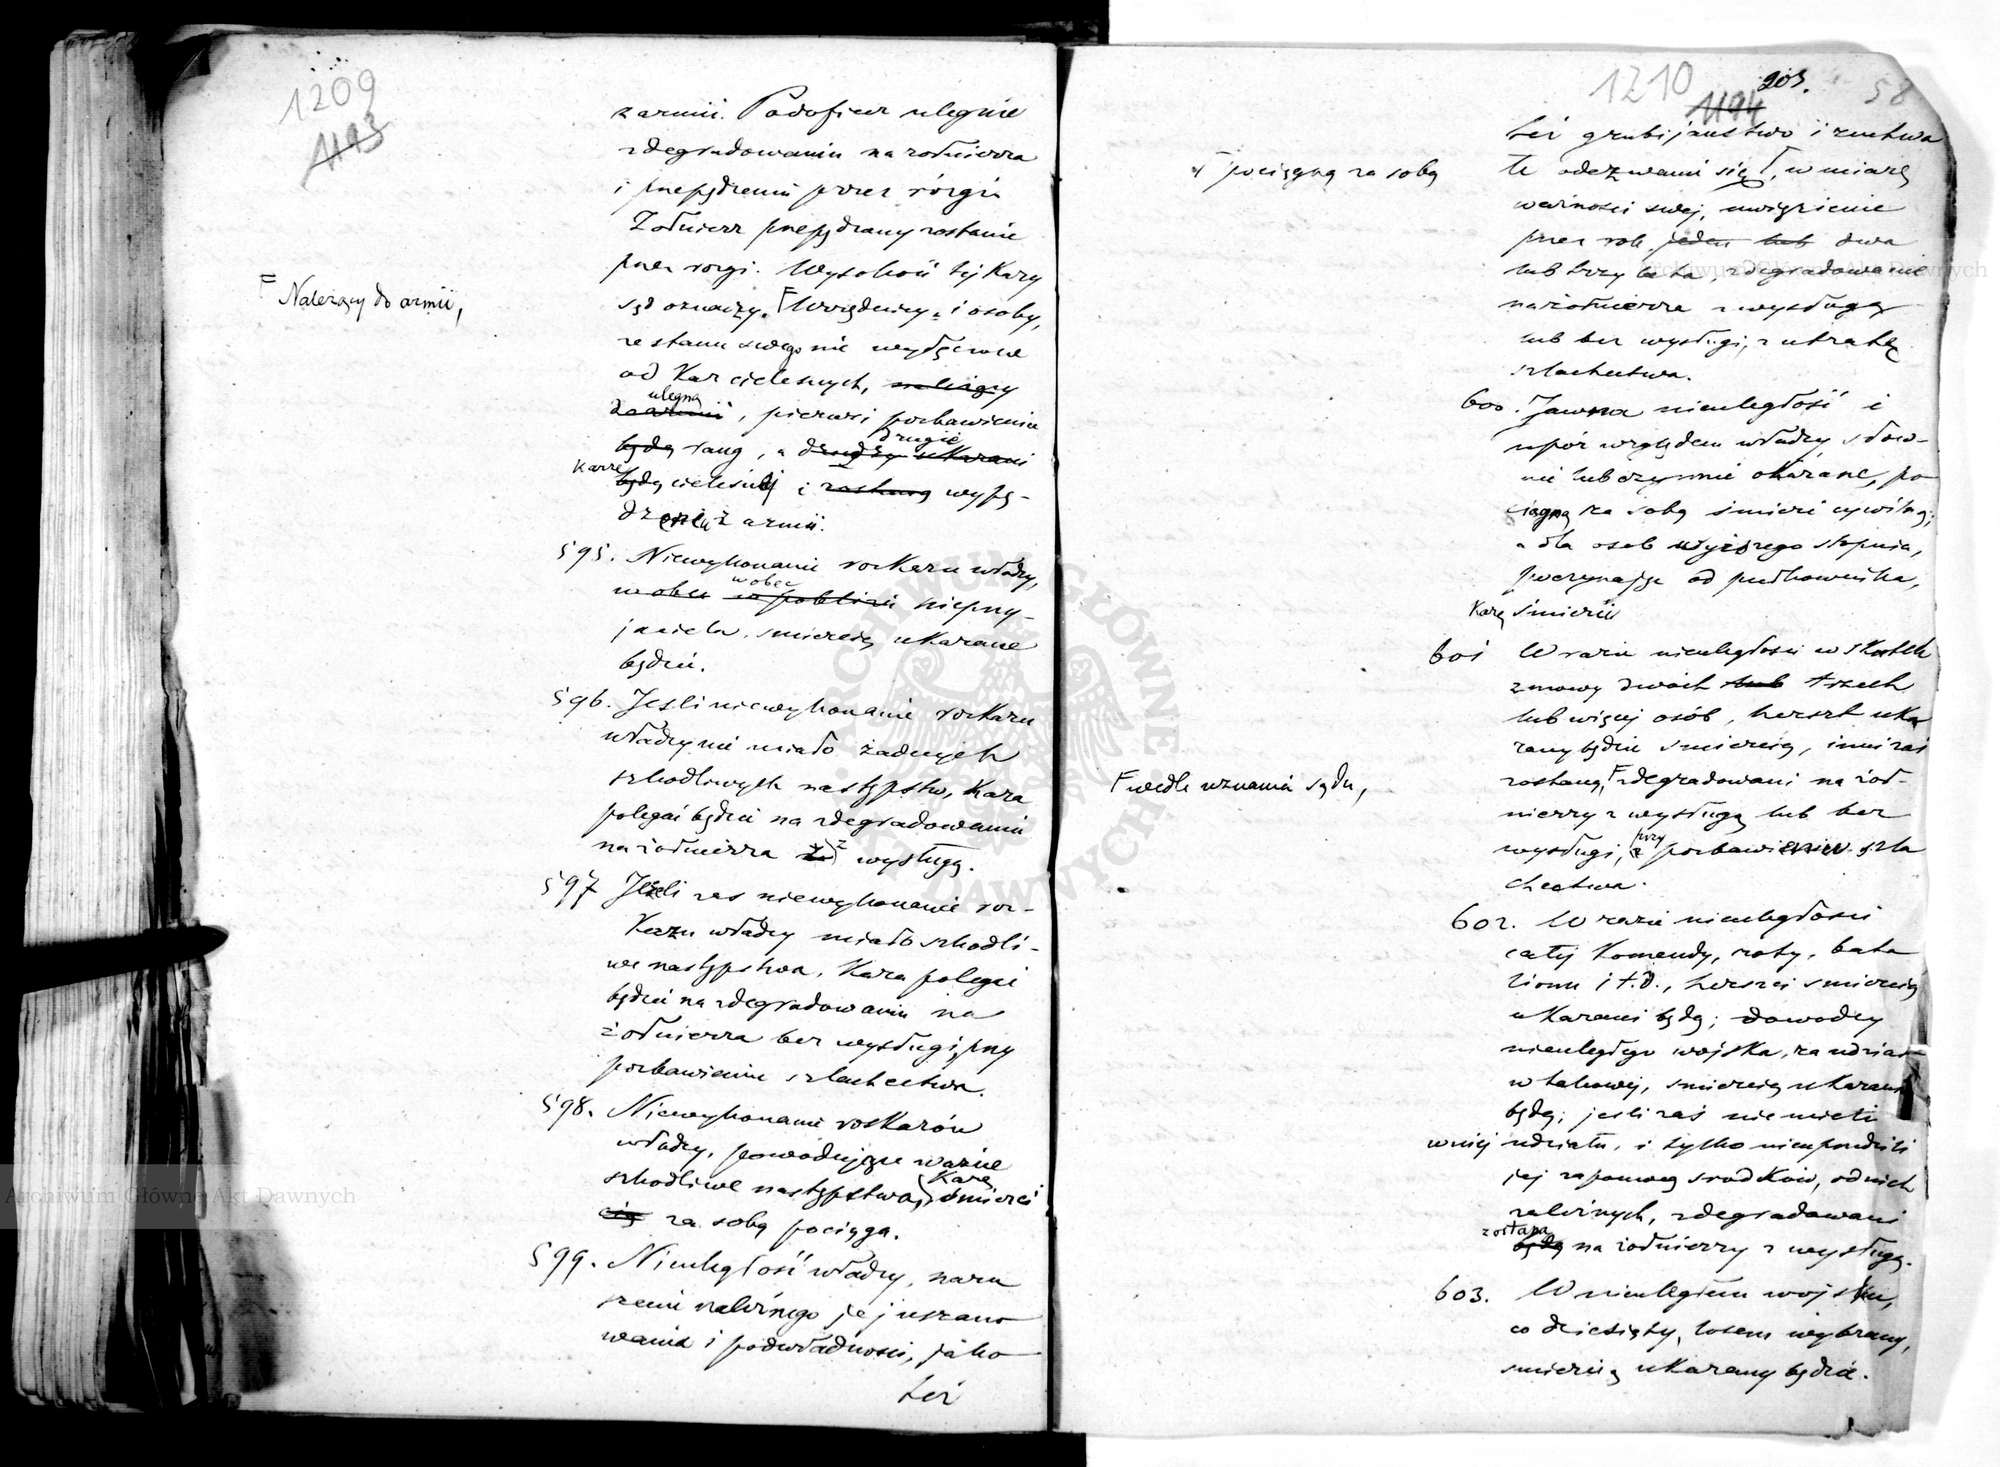 1209
1193
z armii. Podoficer ulegnie
zdegradowaniu na żołnierza
i przepędzeniu przez rózgi.
Żołnierz przepędzany zostanie
przez rózgi. Wysokość tej Kary
sąd oznaczy. Γ Urzędnicy i osoby,
Γ Należący do armii,
ze stanu swego nie wyłączone
od Kar cielesnych, należący
ulegną
do armii, pierwsi pozbawieniu
drugie
będą rang, a drudzy ukarani
Karze
będą cielesnéj i zostaną wypę-
dzeniu z armii.
595. Niewykonanie rozkazu władzy,
wobec
wobec w pobliżu nieprzy-
jaciela, śmiercią ukarane
będzie.
596. Jeśli niewykonanie rozkazu
władzy nie miało żadnych
szkodliwych następstw, Kara
polegać będzie na zdegradowaniu
na żołnierza z wysługą.
597 Jeżeli zaś niewykonanie roz-
Kazu władzy miało szkodli-
we następstwa, Kara polegać
będzie na zdegradowaniu na
żołnierza bez wysługi, przy
pozbawieniu szlachectwa.
598. Niewykonanie rozkazów
władzy, powodujące ważne
Karę
szkodliwe następstwa, śmierci
cią za sobą pociąga.
599. Nieuległość władzy, naru
szenie należnego jej uszano
wania i podwładności, jako
też
1210
203.
58
1194
też grubijaństwo i zuchwa
Γ pociągną za sobą
łe odezwanie się Γ, w miarę
ważności swej, uwięzienie
przez rok jeden lub dwa
lub trzy lata, zdegradowanie
na żołnierza z wysługą
lub bez wysługi, z utratą
szlachectwa.
600. Jawna nieuległość i
upór względem władzy, słow-
nie lub czynnie okazane, po
ciągną za sobą śmierć cywilną;
a dla osób wyższego stopnia,
poczynając od pułkownika,
Karę śmierci
601 W razie nieuległości wskutek
zmowy dwóch lub trzech
lub więcej osób, herszt uka
rany będzie śmiercią, inni zaś
Γ wedle uznania sądu,
zostaną, Γ zdegradowani na żoł-
nierzy z wysługą lub bez
przy
wysługi, z pozbawieniu szla
chectwa.
602. W razie nieuległości
całej Komendy, roty, bata
lionu i t.d., herszci śmiercią
ukarani będą; dowodcy
nieuległego wojska, za udział
w takowej, śmiercią ukarani
będą; jeśli zaś nie mieli
w niej udziału, i tylko nieuprzedzili
jej zapomocą srodków, od nich
zależnych, zdegradowani
zostaną
będą na żołnierzy z wysługą.
603. W nieuległem wojsku,
co dziesiąty, losem wybrany,
śmiercią ukarany będzie.
Archiwum Główne Akt Dawnych